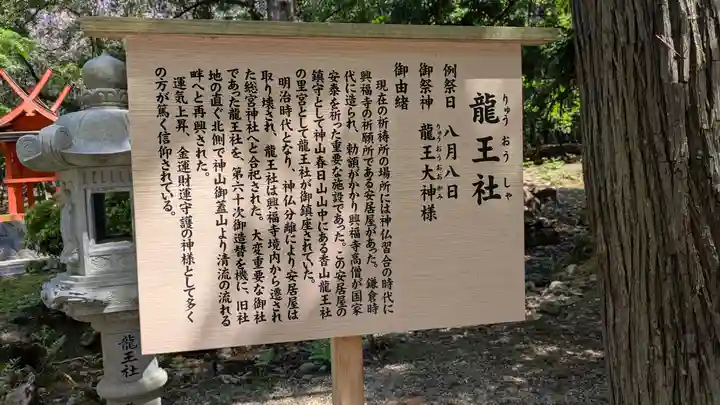 龍王社
りゅうおうしゃ
例祭日 八月八日
御祭神 龍王大神様
りゅうおうおおかみ
御由緒
現在の祈祷所の場所には神仏習合の時代に
興福寺の祈願所である安居屋があった。鎌倉時
代に造られ、勅願がかかり興福寺高僧が国家
安泰を祈った重要な施設であった。この安居屋の
鎮守として神山春日山山中にある香山龍王社
の里宮として龍王社が御鎮座されていた。
明治時代となり、神仏分離により安居屋は
取り壊され、龍王社は興福寺境内から遷され
た総宮神社へと合祀された。大変重要な御社
であった龍王社を、第六十次御造替を機に、旧社
地の直ぐ北側で神山御蓋山より清流の流れる
畔へと再興された。
運氣上昇、金運財運守護の神様として多く
の方が篤く信仰されている。
龍王社